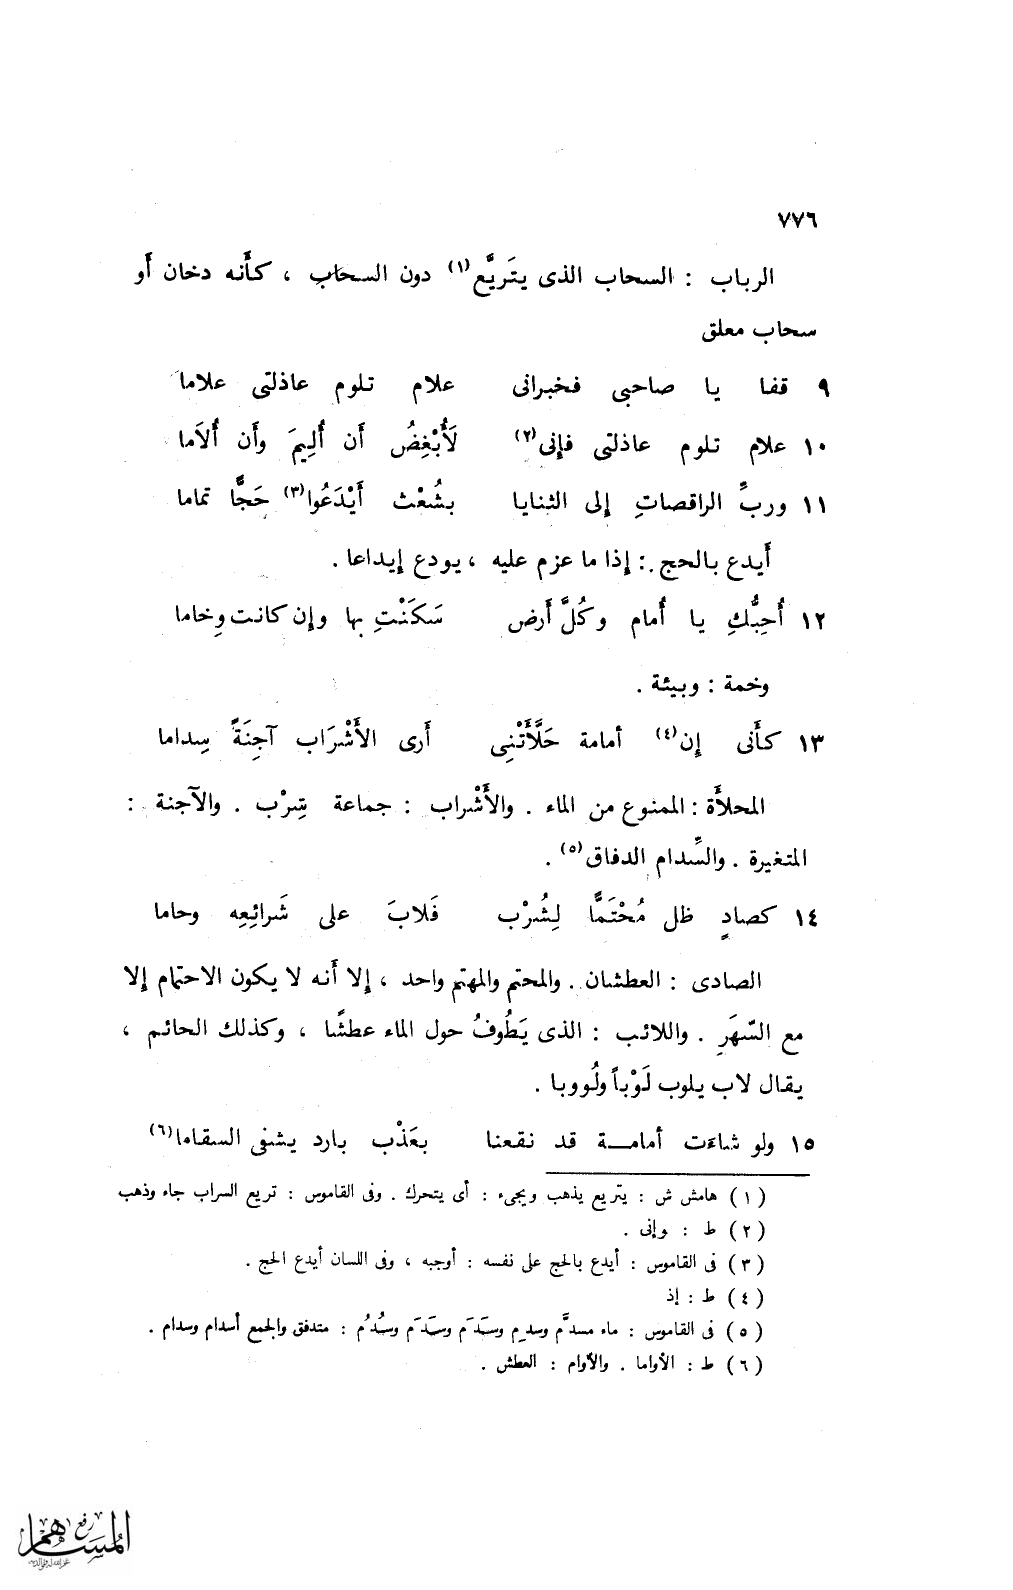 ٧٧٦
الرباب : السحاب الذى يتَريَّع(١) دون السحاب ، كأَنه دخان أَو
سحاب معلق
٩ قفا يا صاحبى فخبرانى علام تلوم عاذلتى علاما
١٠ علام تلوم عاذلتى فإنى(٢) لَأُبْغِضُ أَن أُلِيمَ وأَن أُلاَما
١١ وربِّ الراقصاتِ إلى الثنايا بشُعْث أَيْدَعُوا(٣) حَجًّا تماما
أَيدع بالحج : إذا ما عزم عليه ، يودع إيداعا .
١٢ أُحِبُّكِ يا أُمام وكُلَّ أَرض سَكَنْتِ بها وإن كانت وِخاما
وخمة : وبيئة .
١٣ كأَنى إن(٤) أمامة حَلَّأَتْنِى أَرى الأَشْرَاب آجِنَةً سِداما
المحلأَة : الممنوع من الماء . والأَشْراب : جماعة شِرْب . والآجنة :
المتغيرة . والسِّدام الدفاق(٥) .
١٤ كصادٍ ظل مُحْتَمًّا لِشُرْب فَلابَ على شَرائِعِه وحاما
الصادى : العطشان . والمحتم والمهتم واحد ، إلا أَنه لا يكون الاحتمام إلا
مع السّهَرِ . واللائب : الذى يَطُوفُ حول الماء عطشًا ، وكذلك الحائم ،
يقال لاب يلوب لَوْباً ولُووبا .
١٥ ولو شاءَت أمامـــة قد نقعنا بعَذْب بارد يشفى السقاما(٦)
(١) هامش ش : يتريع يذهب ويجىء : أى يتحرك . وفى القاموس : تريع السراب جاء وذهب
(٢) ط : وإنى .
(٣) فى القاموس : أيدع بالحج على نفسه : أوجبه ، وفى اللسان أيدع الحج .
(٤) ط : إذ
(٥) فى القاموس : ماء مسدَّم وسدِم وسَدَم وسَدَم وسُدُم : متدفق والجمع أسدام وسدام .
(٦) ط : الأواما . والأوام : العطش .